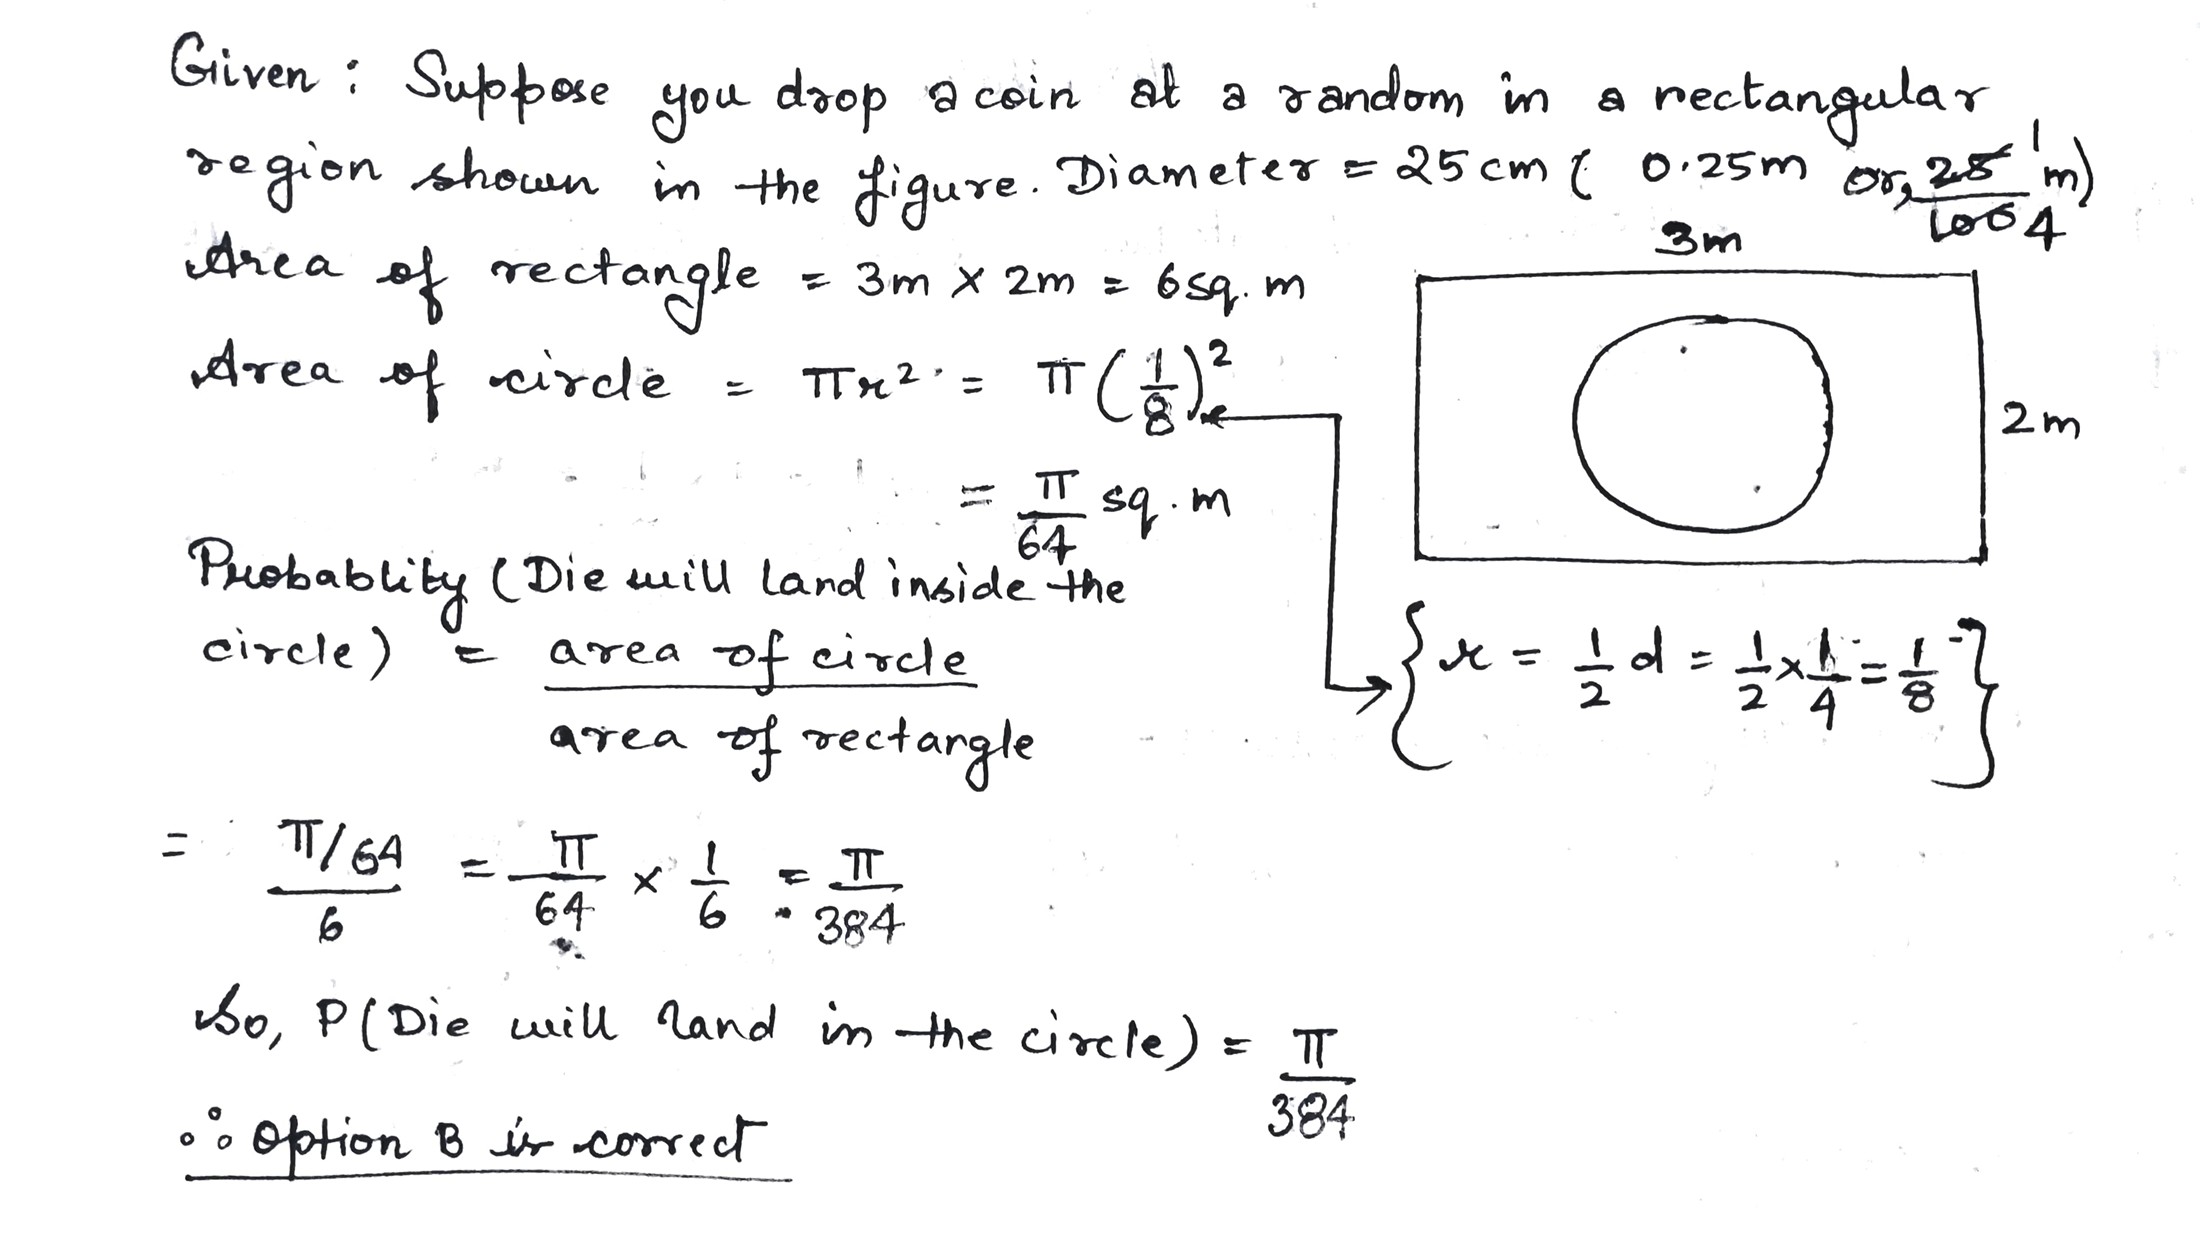 Given : Suppose you drop a coin at a random in a rectangular
region shown in the figure. Diameter = 25 cm ( 0.25m or, 25/100 1/4 m)
3m
Area of rectangle = 3m × 2m = 6 sq. m
Area of circle = πr² = π(1/8)²
2m
= π/64 sq. m
Probablity (Die will land inside the
circle) = area of circle / area of rectangle
{ r = 1/2 d = 1/2 × 1/4 = 1/8 }
= π/64 / 6 = π/64 × 1/6 = π/384
So, P(Die will land in the circle) = π/384
∴ option B is correct